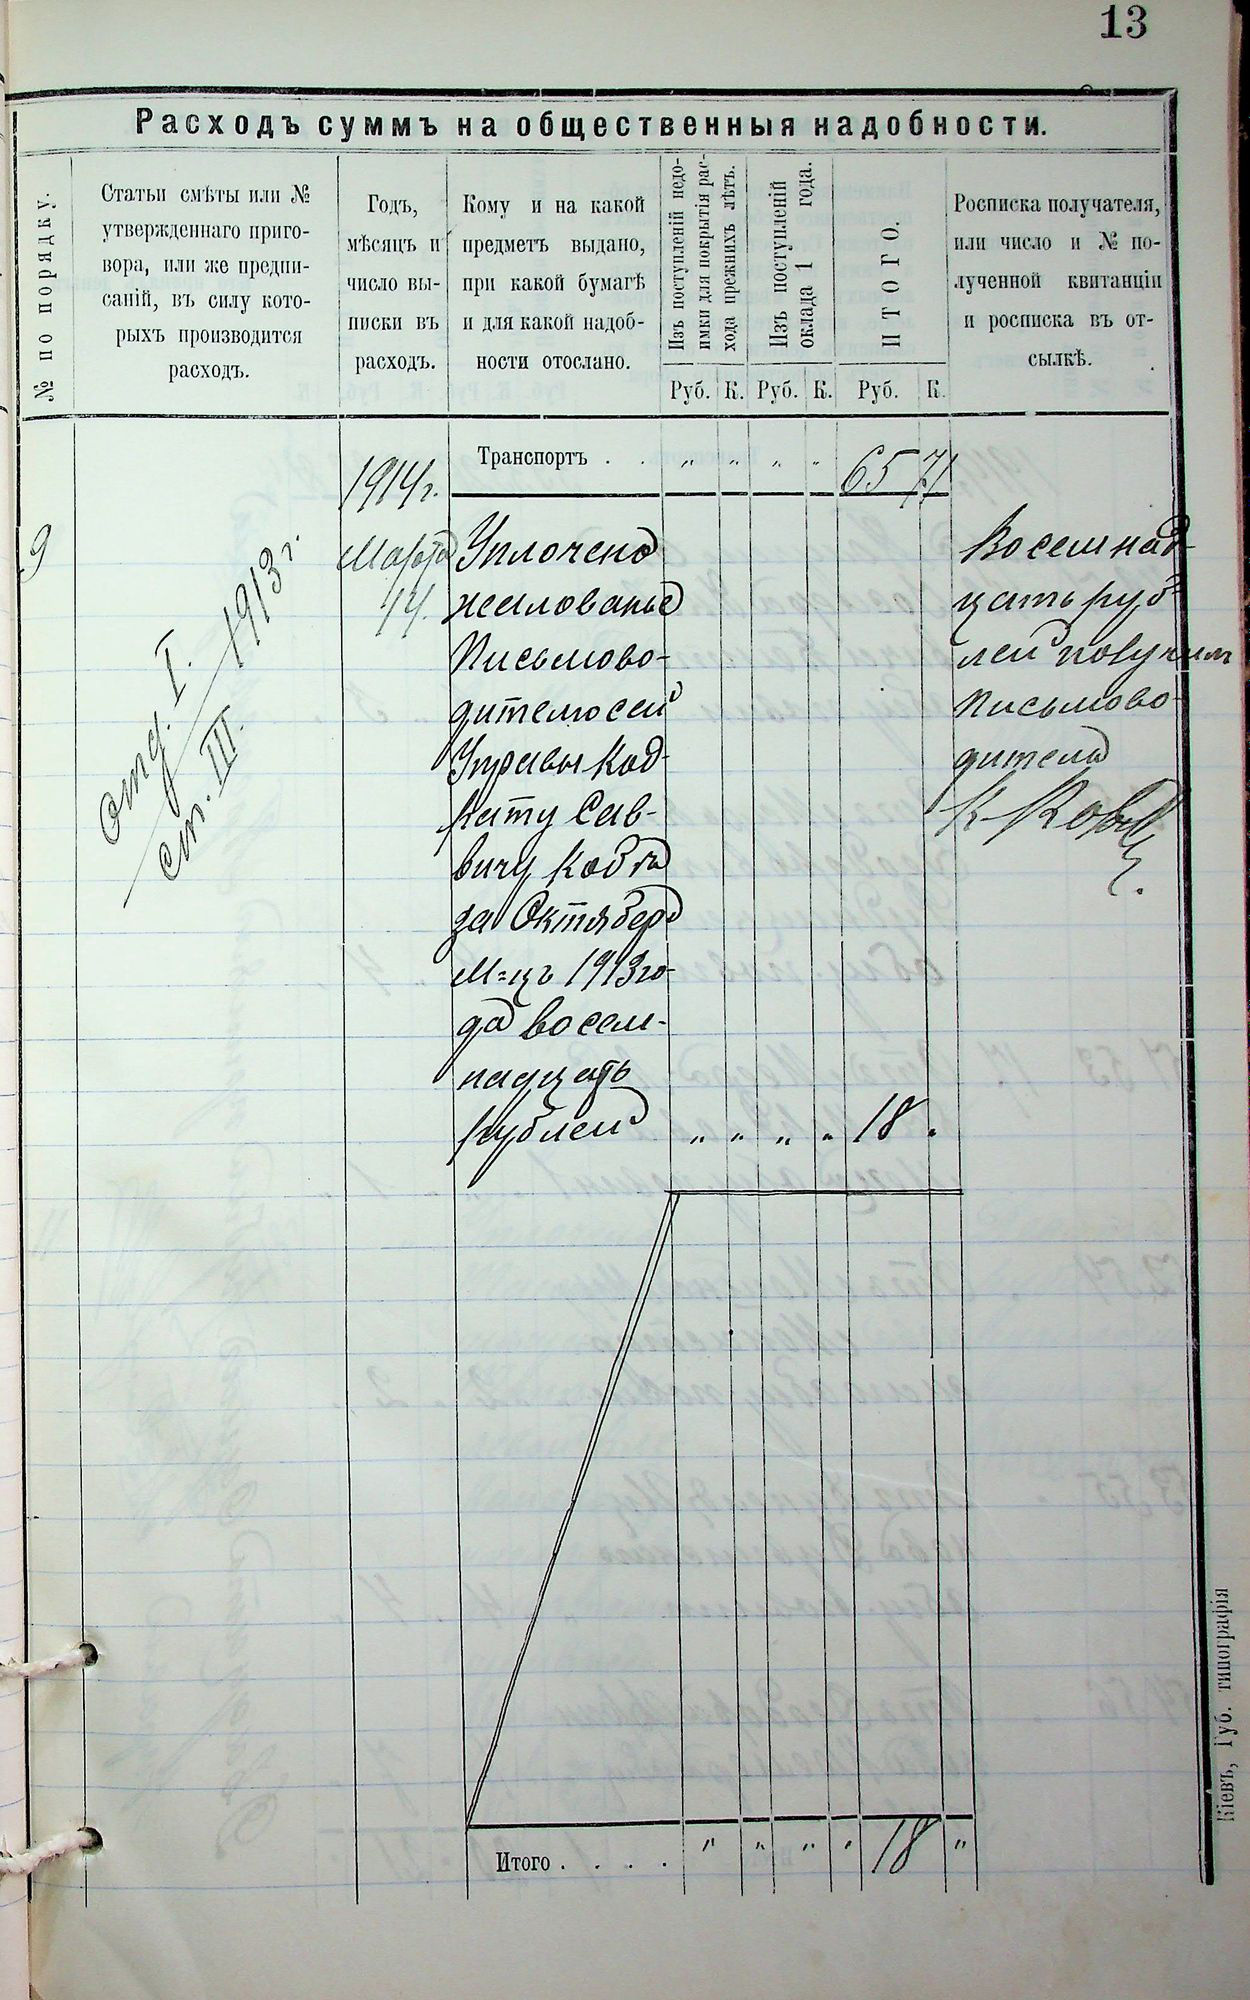 13
Расходъ суммъ на общественныя надобности.
№ по порядку.
Статьи смѣты или №
утвержденнаго приго-
вора, или же предпи-
саній, въ силу кото-
рыхъ производится
расходъ.
Годъ,
мѣсяцъ и
число вы-
писки въ
расходъ.
Кому и на какой
предметъ выдано,
при какой бумагѣ
и для какой надоб-
ности отослано.
Изъ поступленій недо-
имки для покрытія рас-
хода прежнихъ лѣтъ.
Изъ поступленій
оклада 1 года.
ИТОГО.
Росписка получателя,
или число и № по-
лученной квитанціи
и росписка въ от-
сылкѣ.
Руб. К. Руб. К. Руб. К.
1914 г.
Транспортъ . . „ „ „ „ 65 71
9
отд. I. 1913 г.
ст. III.
Марта
14.
Уплочено
жалованье
Письмово-
дителю сей
Управы
Сав-
вичу
за Октябрь
М=цъ 1913 го-
да восем-
надцать
рублей „ „ „ „ 18 „
Восемнад-
цать руб-
лей получилъ
Письмово-
дитель
Итого . . . . „ „ „ „ 18 „
Кіевъ, Губ. типографія